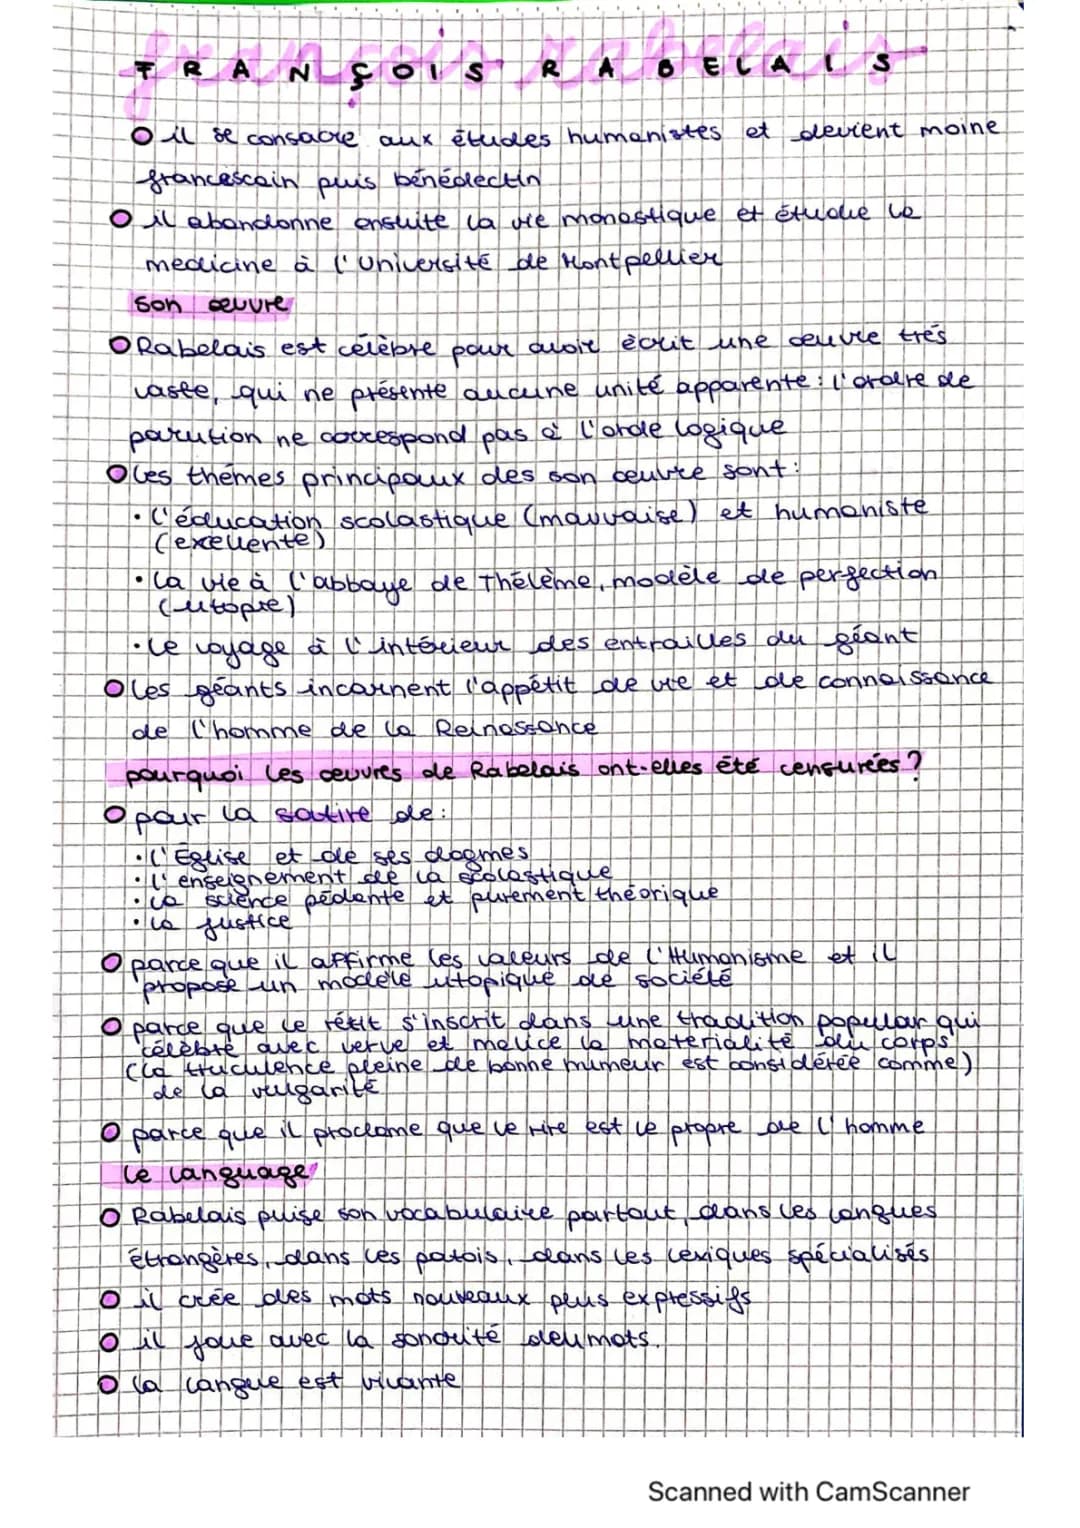 françois rabelais
FRANÇOIS RABELAIS
il se consacre aux études humanistes et devient moine
francescain puis bénédectin
il abandonne ensuite la vie monastique et étudie la
medicine à l'Université de Montpellier
son œuvre
Rabelais est célèbre pour avoir écrit une œuvre très
vaste, qui ne présente aucune unité apparente : l'ordre de
parution ne correspond pas à l'orde logique
les thémes principaux des son œuvre sont :
• l'éducation scolastique (mauvaise) et humaniste
(exellente)
• la vie à l'abbaye de Thélème, modèle de perfection
(utopie)
• le voyage à l'intérieur des entrailles du géant
les géants incarnent l'appétit de vie et de connaissance
de l'homme de la Reinassance
pourquoi les œuvres de Rabelais ont-elles été censurées ?
pour la satire de :
• l'Église et de ses dogmes
• l'enseignement de la scolastique
• la science pédante et purement théorique
• la justice
parce que il affirme les valeurs de l'Humanisme et il
propose un modèle utopique de société
parce que le récit s'inscrit dans une tradition popular qui
célèbre avec verve et malice la materialité du corps
(la truculence pleine de bonne humeur est considérée comme)
de la vulgarité
parce que il proclame que le rire est le propre de l'homme
le language
Rabelais puise son vocabulaire partout, dans les langues
étrangères, dans les patois, dans les lexiques spécialisés
il crée des mots nouveaux plus expressifs
il joue avec la sonorité deu mots.
la langue est vivante
Scanned with CamScanner